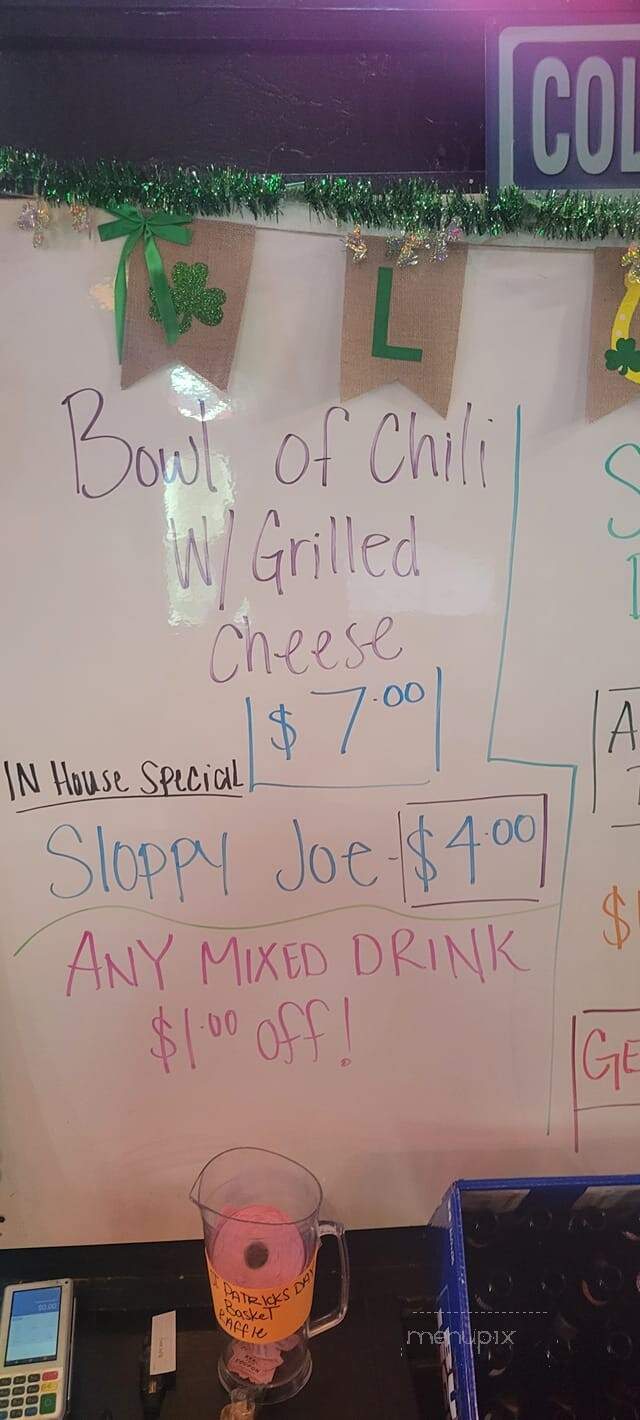 COL
L
Bowl of Chili
W/ Grilled
Cheese
$7.00
IN House Special
Sloppy Joe - $4.00
ANY MIXED DRINK
$1.00 off!
S
A
$1
GE
PATRICKS DAY
Basket
Raffle
menupix